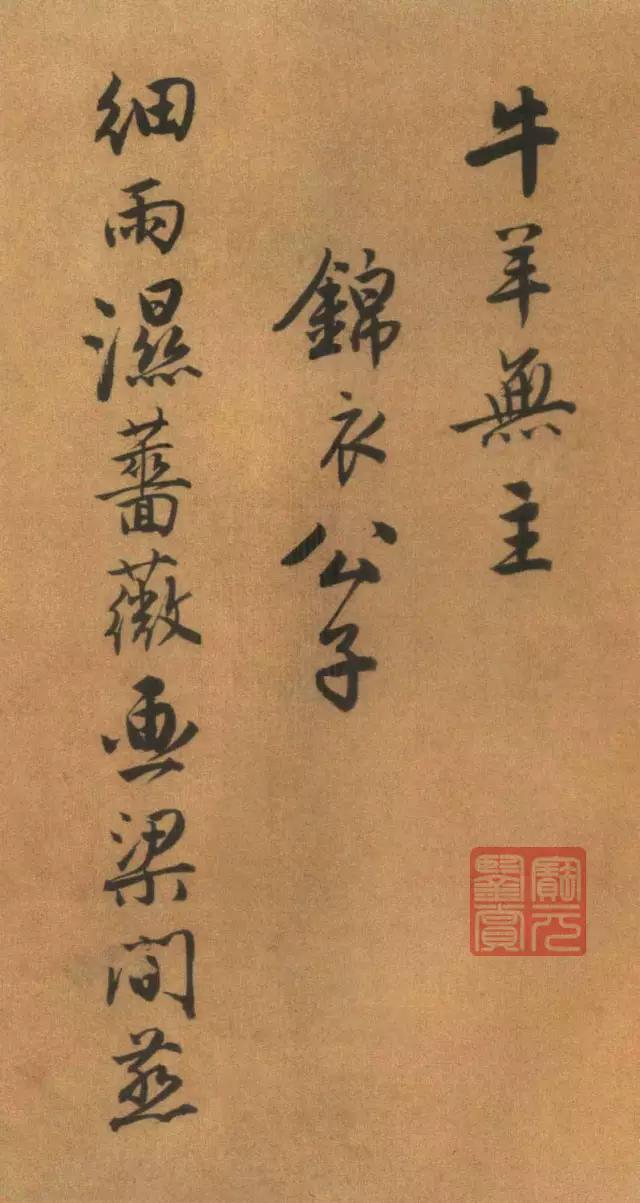 牛羊無主
錦衣公子
細雨濕薔薇画梁間燕
寶元
鑒賞